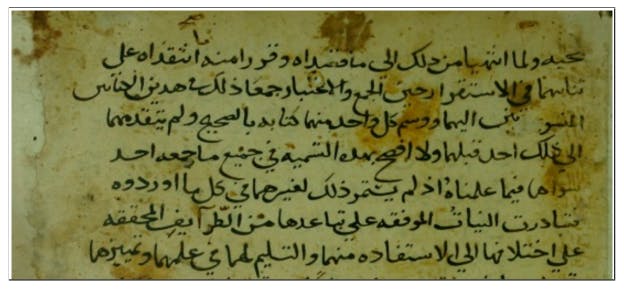 صحبه ولما انتهيا من ذلك الى ما قصداه وقررا منه ما انتقداه على
تناهيهما في الاستقرار حين الجمع والاختبار جمعا ذلك في هذين الكتابين
اليهما ووسم كل واحد منهما كتابه بالصحيح ولم يتقدمهما
الي ذلك احد قبلهما ولا افصح بهذه التسميه في جميع ما جمعه احد
سواهما فيما علمناه اذ لم يستمر ذلك لغيرهما في كل ما اوردوه
فتبادرت النيات الموفقه على تباعدها من الطرايف المحققه
علي اختلافها الي الاستفاده منهما والتسليم لهما في علمهما وتمييزهما